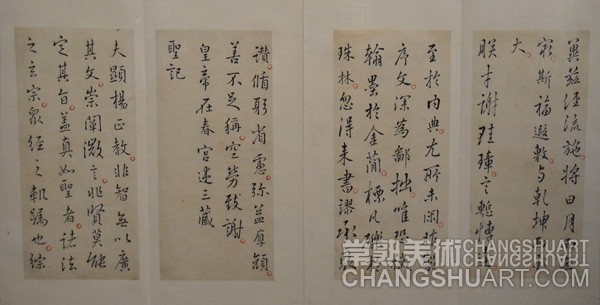 冀茲經流施將日月
窮斯福遐敷與乾坤
大
朕才謝珪璋言慙博
至於內典尤所未閑
序文深為鄙拙唯恐
翰墨於金簡標瓦礫
珠林忽得來書謬承
讚循躬省慮彌益厚顏
善不足稱空勞致謝
皇帝在春宮述三藏
聖記
夫顯揚正教非智無以廣
其文崇闡微言非賢莫能
定其旨蓋真如聖者諸法
之玄宗衆經之軌躅也綜
常熟美術 CHANGSHUART.COM
CHANGSHUART.COM